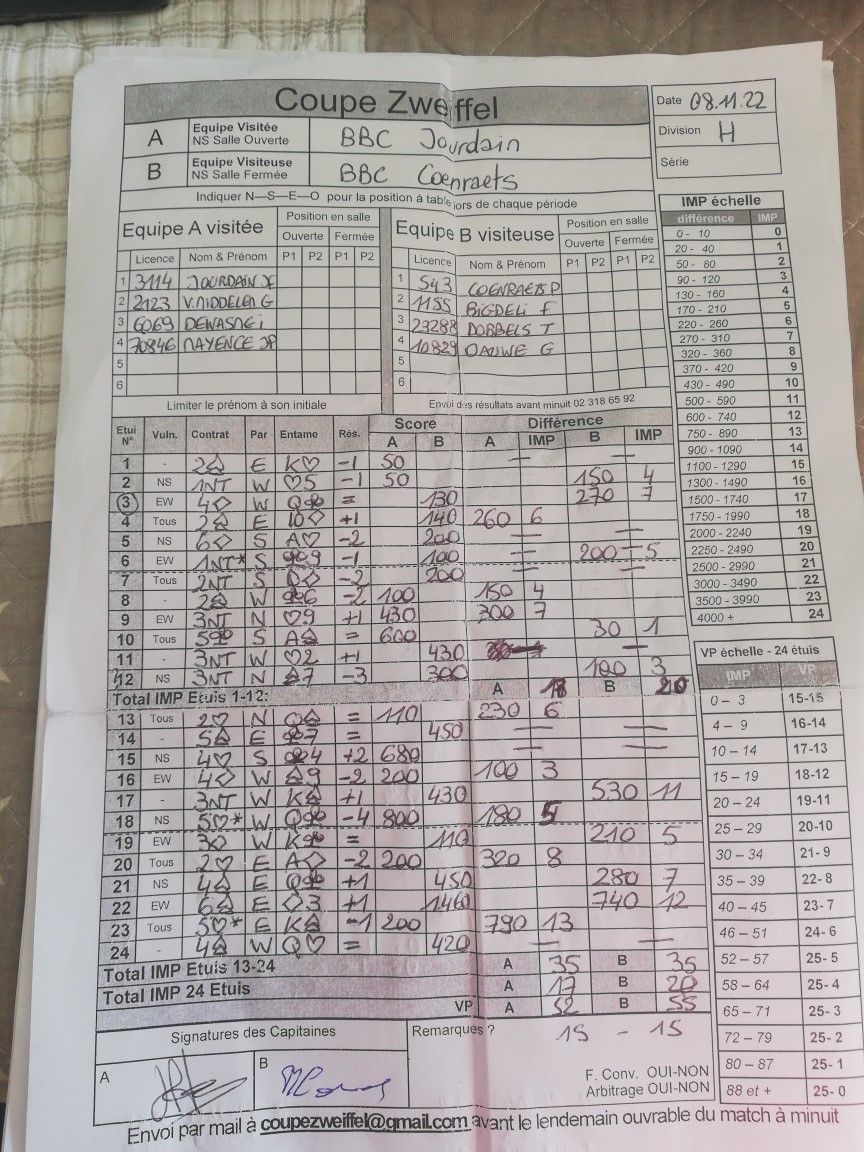 Coupe Zweiffel
Date 08.11.22
A Equipe Visitée NS Salle Ouverte BBC Jourdain
Division H
B Equipe Visiteuse NS Salle Fermée BBC Coenraets
Série
Indiquer N—S—E—O pour la position à table lors de chaque période
Equipe A visitée Position en salle Ouverte Fermée
Licence Nom & Prénom P1 P2 P1 P2
1 3114 JOURDAIN JE
2 2123 V.MIDDELEM G
3 6069 DEWASME i
4 70846 MAYENCE JP
5
6
Equipe B visiteuse Position en salle Ouverte Fermée
Licence Nom & Prénom P1 P2 P1 P2
1 543 COENRAETS P
2 1155 BIGDELI F
3 23288 DOBBELS T
4 10829 DAUWE G
5
6
Limiter le prénom à son initiale
Envoi des résultats avant minuit 02 318 65 92
Etui N° Vuln. Contrat Par Entame Rés. Score A B Différence A IMP B IMP
1 - 2♤ E K♡ -1 50 — —
2 NS 1NT W ♡5 -1 50 150 4
3 EW 4◇ W Q♧ = 130 270 7
4 Tous 2♤ E 10◇ +1 140 260 6
5 NS 6◇ S A♡ -2 200 — —
6 EW 1NT* S ♧9 -1 100 200 5
7 Tous 2NT S D◇ -2 200 — —
8 - 2♤ W ♧6 -2 100 150 4
9 EW 3NT N ♡9 +1 430 300 7
10 Tous 5♧ S A♤ = 600 30 1
11 - 3NT W ♡2 +1 430
12 NS 3NT N ♤7 -3 300 100 3
Total IMP Etuis 1-12: A B 20
13 Tous 2♡ N Q♤ = 110 230 6
14 - 5♤ E ♧7 = 450 — —
15 NS 4♡ S ♧4 +2 680 — —
16 EW 4◇ W ♤9 -2 200 100 3
17 - 3NT W K♤ +1 430 530 11
18 NS 5♡* W Q♧ -4 800 180 5
19 EW 3◇ W K♧ = 110 210 5
20 Tous 2♡ E A◇ -2 200 320 8
21 NS 4♤ E Q♧ +1 450 280 7
22 EW 6♤ E ◇3 +1 1460 740 12
23 Tous 5♡* E K♤ -1 200 790 13
24 - 4♤ W Q♡ = 420 — —
Total IMP Etuis 13-24 A 35 B 35
Total IMP 24 Etuis A 17 B 20
VP A 52 B 55
Signatures des Capitaines
Remarques ? 15 - 15
A B
F. Conv. OUI-NON
Arbitrage OUI-NON
Envoi par mail à coupezweiffel@gmail.com avant le lendemain ouvrable du match à minuit
IMP échelle
différence IMP
0 - 10 0
20 - 40 1
50 - 80 2
90 - 120 3
130 - 160 4
170 - 210 5
220 - 260 6
270 - 310 7
320 - 360 8
370 - 420 9
430 - 490 10
500 - 590 11
600 - 740 12
750 - 890 13
900 - 1090 14
1100 - 1290 15
1300 - 1490 16
1500 - 1740 17
1750 - 1990 18
2000 - 2240 19
2250 - 2490 20
2500 - 2990 21
3000 - 3490 22
3500 - 3990 23
4000 + 24
VP échelle - 24 étuis
IMP VP
0 – 3 15-15
4 – 9 16-14
10 – 14 17-13
15 – 19 18-12
20 – 24 19-11
25 – 29 20-10
30 – 34 21- 9
35 – 39 22- 8
40 – 45 23- 7
46 – 51 24- 6
52 – 57 25- 5
58 – 64 25- 4
65 – 71 25- 3
72 – 79 25- 2
80 – 87 25- 1
88 et + 25- 0